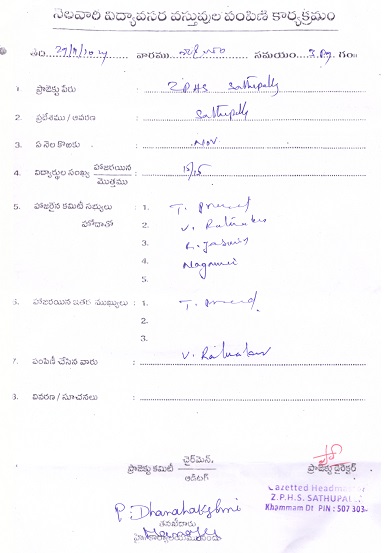 నెలవారి విద్యావసర వస్తువుల పంపిణి కార్యక్రమం
వారము సమయం: గం
1. ప్రాజెక్టు పేరు : Z.P.H.S Sathupally
2. ప్రదేశము / ఆవరణ : Sathupally
3. ఏ నెల కొఱకు : Nov
4. విద్యార్థుల సంఖ్య హాజరయిన / మొత్తము : 15/25
5. హాజరైన కమిటీ సభ్యులు : 1. T.
హోదాతో 2. V. Ratnakar
3. K. Jasmis
4. Nagamni
5.
6. హాజరయిన ఇతర ముఖ్యులు : 1. T.
2.
3.
7. పంపిణీ చేసిన వారు : V. Ratnakar
8. వివరణ / సూచనలు :
ప్రాజెక్టు కమిటీ చైర్‌మెన్. / ఆడిటర్
ప్రాజెక్టు డైరెక్టర్
Gazetted Headmaster
Z.P.H.S. SATHUPALLY
Khammam Dt PIN : 507 303
P. Dhanalakshmi